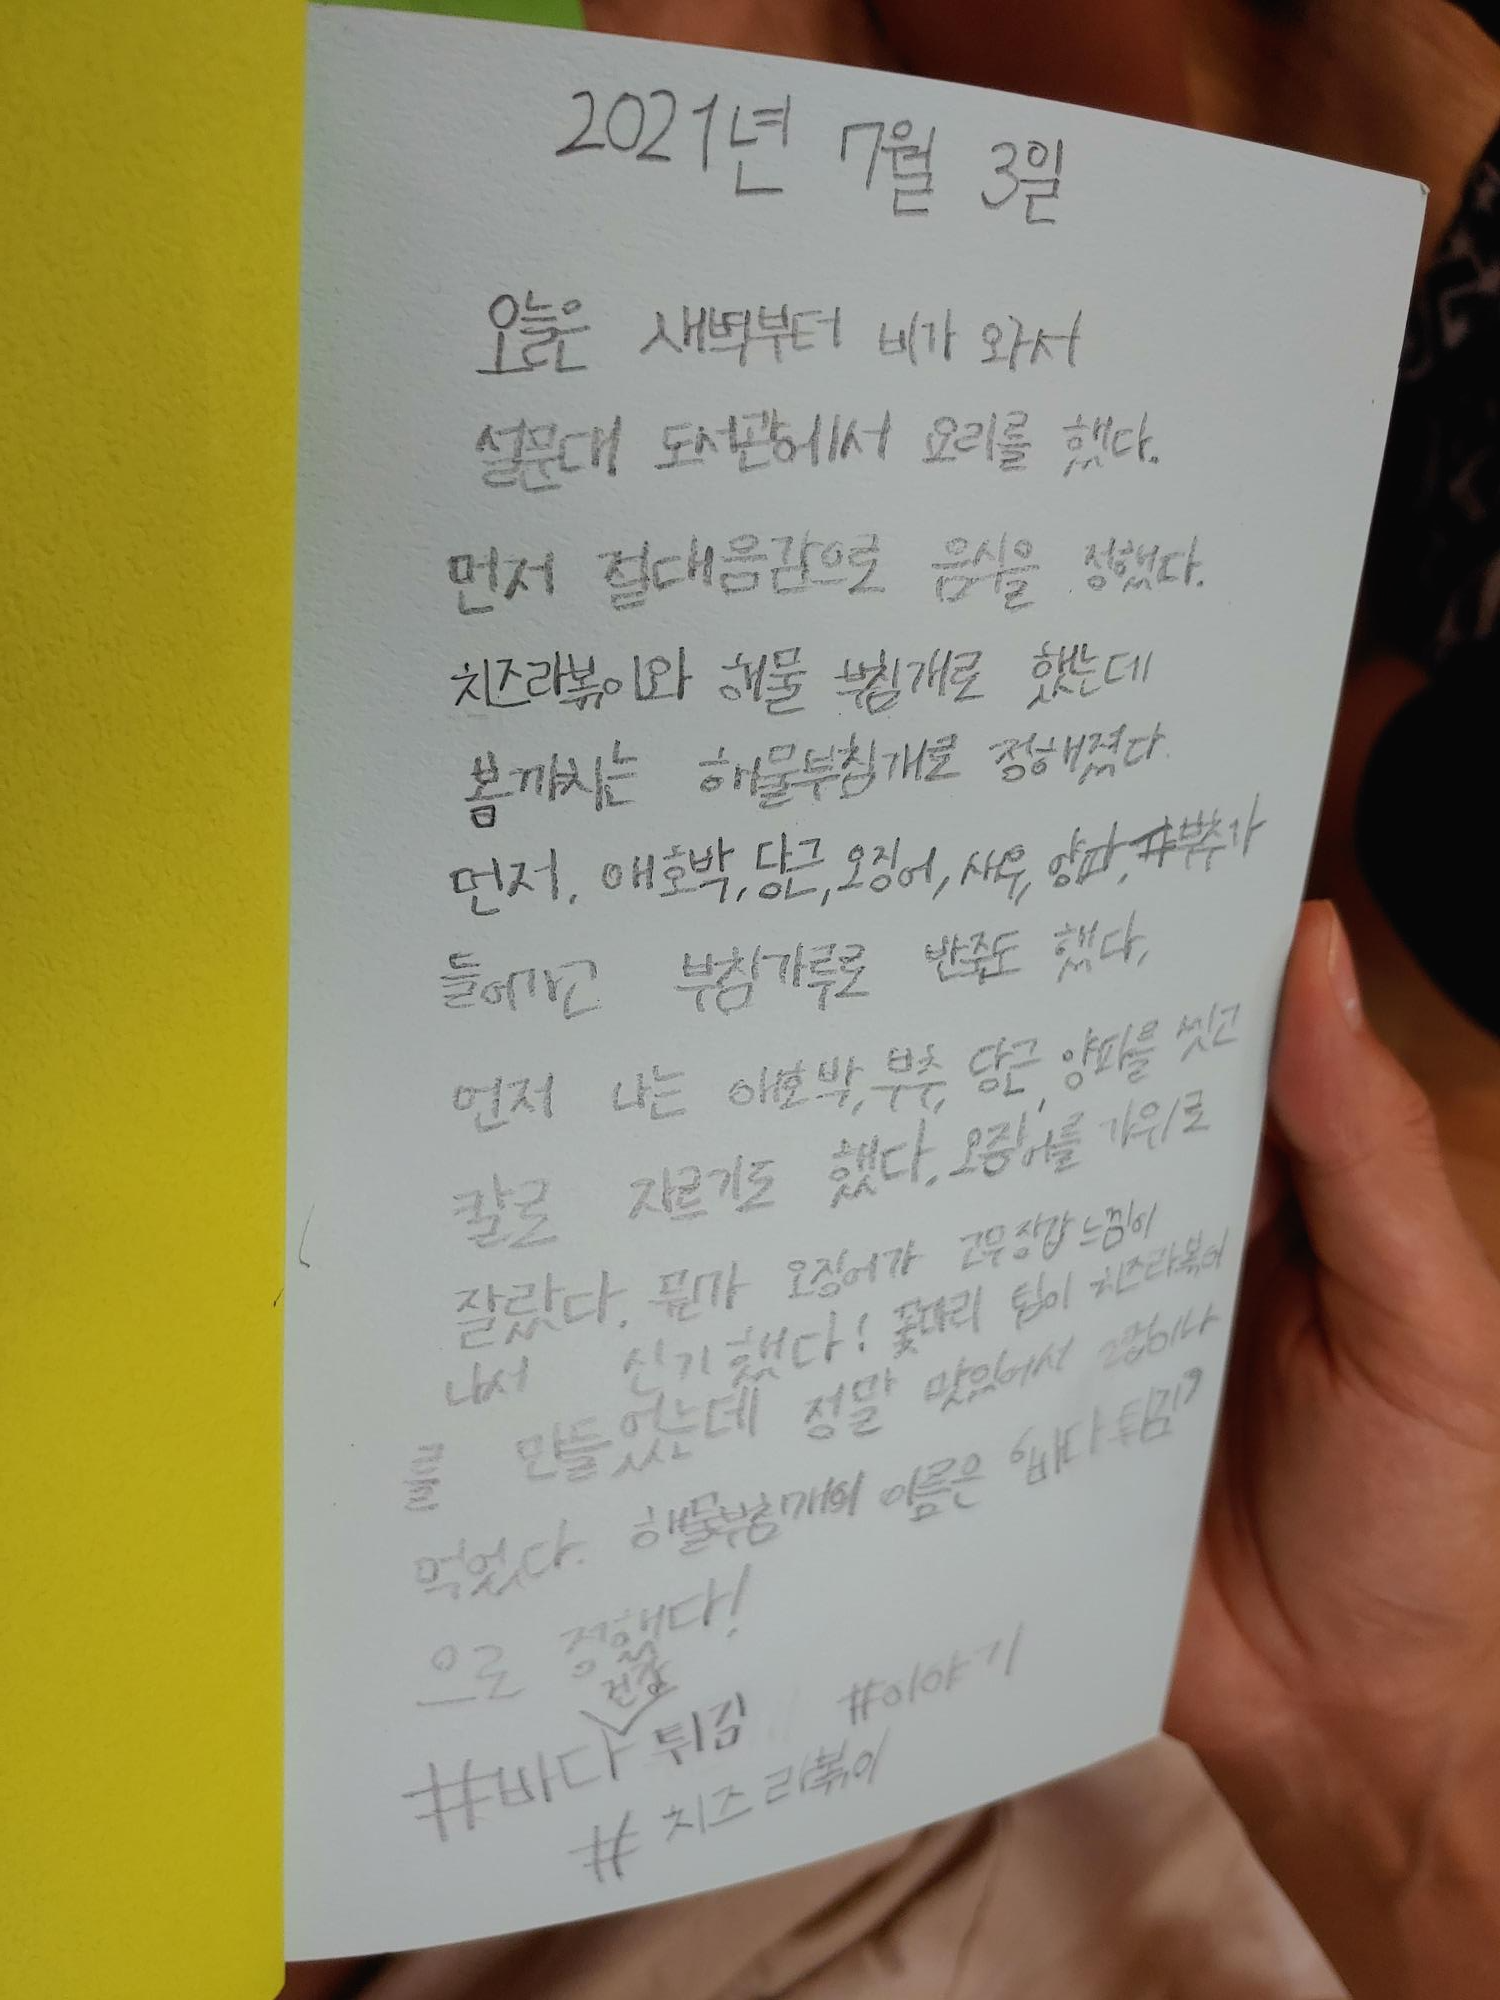 2021년 7월 3일
오늘은 새벽부터 비가 와서
설문대 도서관에서 요리를 했다.
먼저 절대음감으로 음식을 정했다.
치즈라볶이와 해물 부침개로 했는데
봄까치는 해물부침개로 정해졌다.
먼저, 애호박, 당근, 오징어, 새우, 양파, 부추가
들어가고 부침가루로 반죽도 했다,
먼저 나는 애호박, 부추, 당근, 양파를 씻고
칼로 자르기도 했다. 오징어를 가위로
잘랐다. 뭔가 오징어가 고무장갑 느낌이
나서 신기했다! 꽃마리 팀이 치즈라볶이
를 만들었는데 정말 맛있어서 2접이나
먹었다. 해물부침개의 이름은
으로 정했다!
건강
#바다 튀김 #이야기
#치즈라볶이